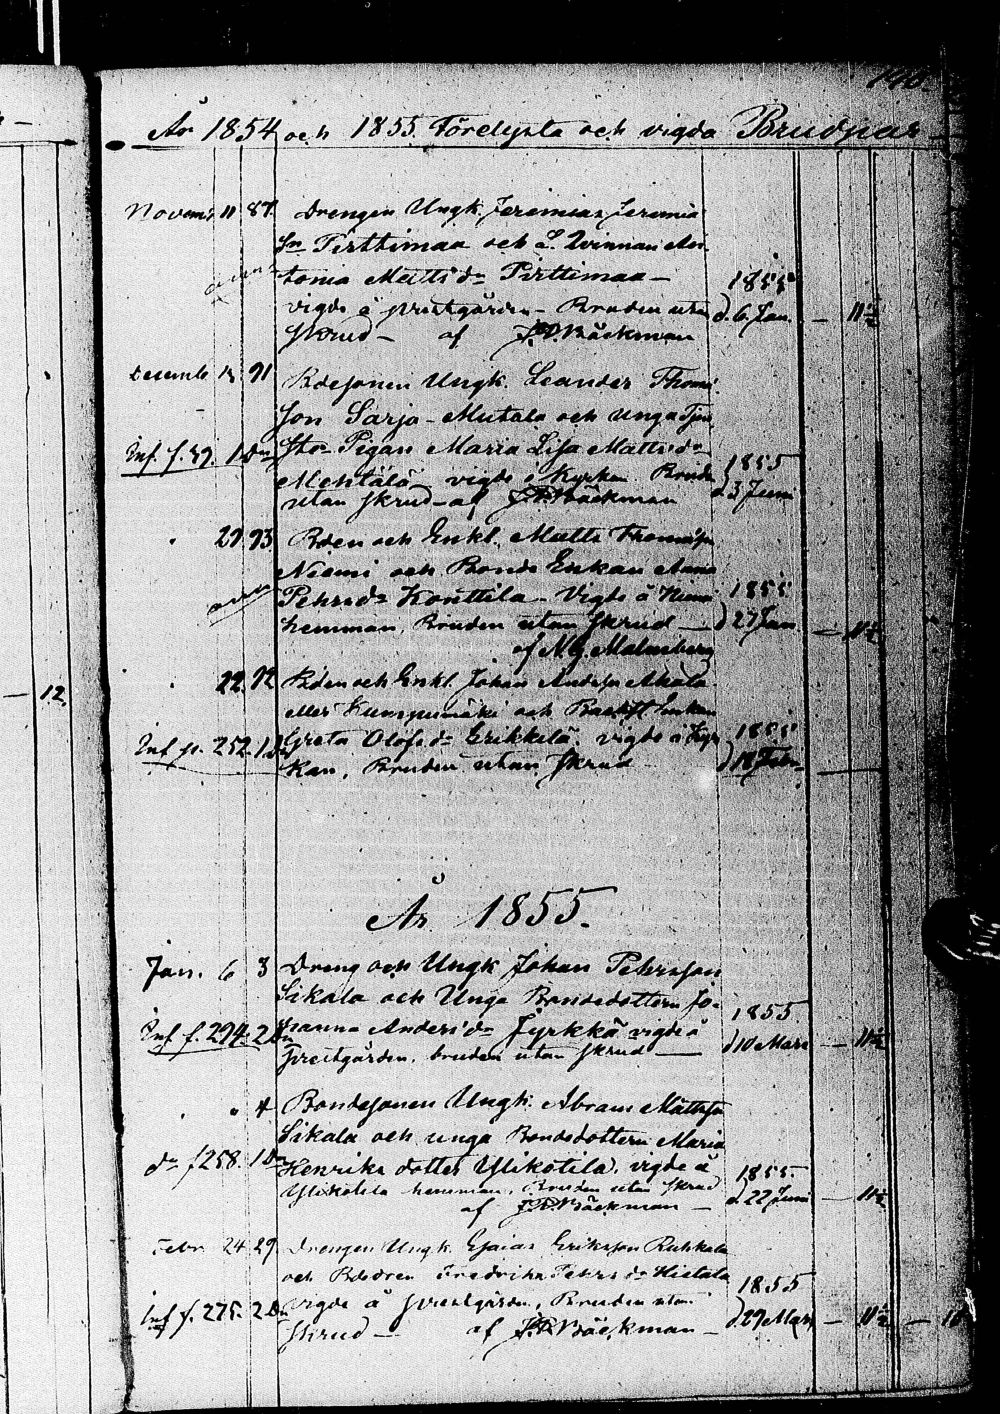 År 1854 och 1855 Förelysta och vigda Brudpar
Novemb 11 87. Drengen Ungk. Jeremias Jeremia
Sn Pirttimaa och L. Qvinnan An
tonia Matts dr Pirttimaa —
1855
vigde å prestgården — Bruden utan d. 6. Jan. — 11½
Skrud — af Bäckman
Decemb 91 Bdesonen Ungk. Leander Thoms
Son Sarja-Mutala och Unga
Inf. f. 89. Pigan Maria Lisa Mattsdr
1855
vigde i Kyrkan Bruden d 3 Juni
utan skrud — af Bäckman
29. 93 Bden och Enkl. Matts
Niemi och Bonde Enkan Anna
1855
Pehrsdr Konttila Vigde å Niemi
hemman, Bruden utan skrud — d 27 Jan — 11½
af N.G. Malmberg
12.
22. 92 Bden och Enkl. Johan Anders
eller och Enkan
1855
Inf p. 252. Greta Olofs dr Erikkilä. vigde i Kyr
kan, Bruden utan Skrud d 18 Febr
År 1855.
Jan. 6 3 Dreng och Ungk Johan Pehrsson
Sikala och Unga Bondedottern Jo-
1855
Inf f. 294. hanna Anders dr Jyrkkä vigde å
Prestgården, bruden utan skrud — d 10 Mars — 11½
" " 4 Bondesonen Ungk. Abram Mattsson
Sikala och unga Bondedottern Maria
do f 258. Henriks dotter Ylikotila, vigde å
1855
Ylikotila hemman, Bruden utan skrud d. 22 Juni — 11½
af Bäckman —
Febr 24. 29. Drengen Ungk. Esaias Eriksson Ruhkala
och Fredrika Pehrs dr Hietala
1855
Inf f. 275. vigde å prestgården, Bruden utan d 29 Mars — 11½ —
Skrud — af Bäckman —